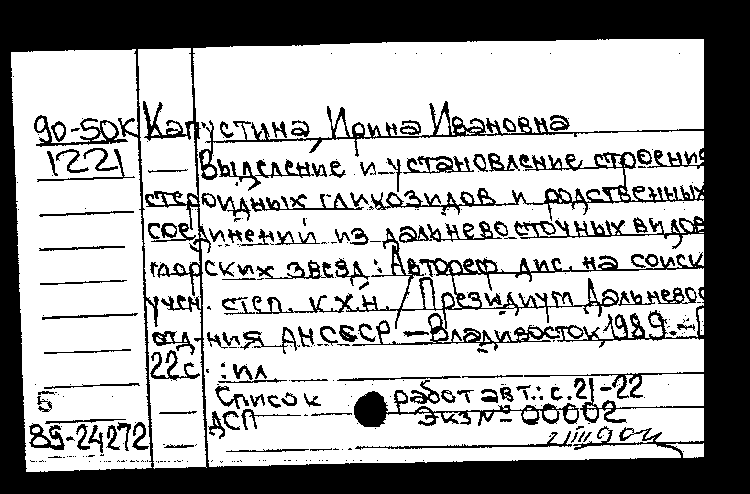 90-50К Капустина, Ирина Ивановна.
1221 — Выделение и установление строения
стероидных гликозидов и родственных
соединений из дальневосточных видов
морских звезд: Автореф. дис. на соиск
учен. степ. к.х.н. / Президиум Дальневос
отд-ния АН СССР. — Владивосток, 1989. — [
22 с. : ил
Список работ авт.: с. 21-22
Б ДСП Экз № 00002
89-24272